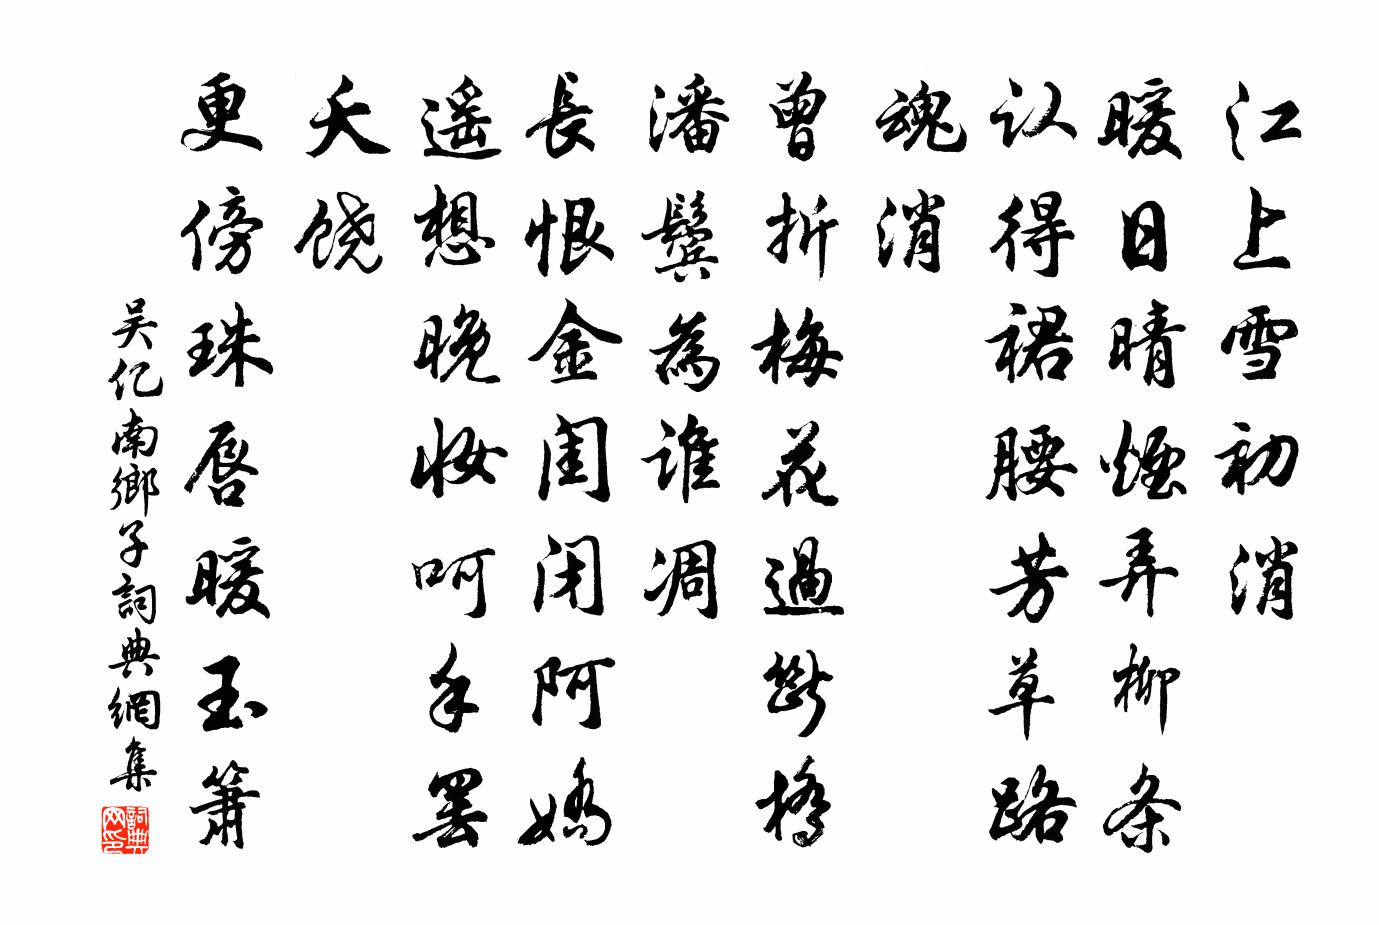 江上雪初消
暖日晴煙弄柳条
认得裙腰芳草路
魂消
曾折梅花過斷橋
潘鬓為谁凋
長恨金闺闭阿嬌
遥想晚妆呵手罢
夭饶
更傍珠唇暖玉箫
吴亿南鄉子詞典網集
詞典网印